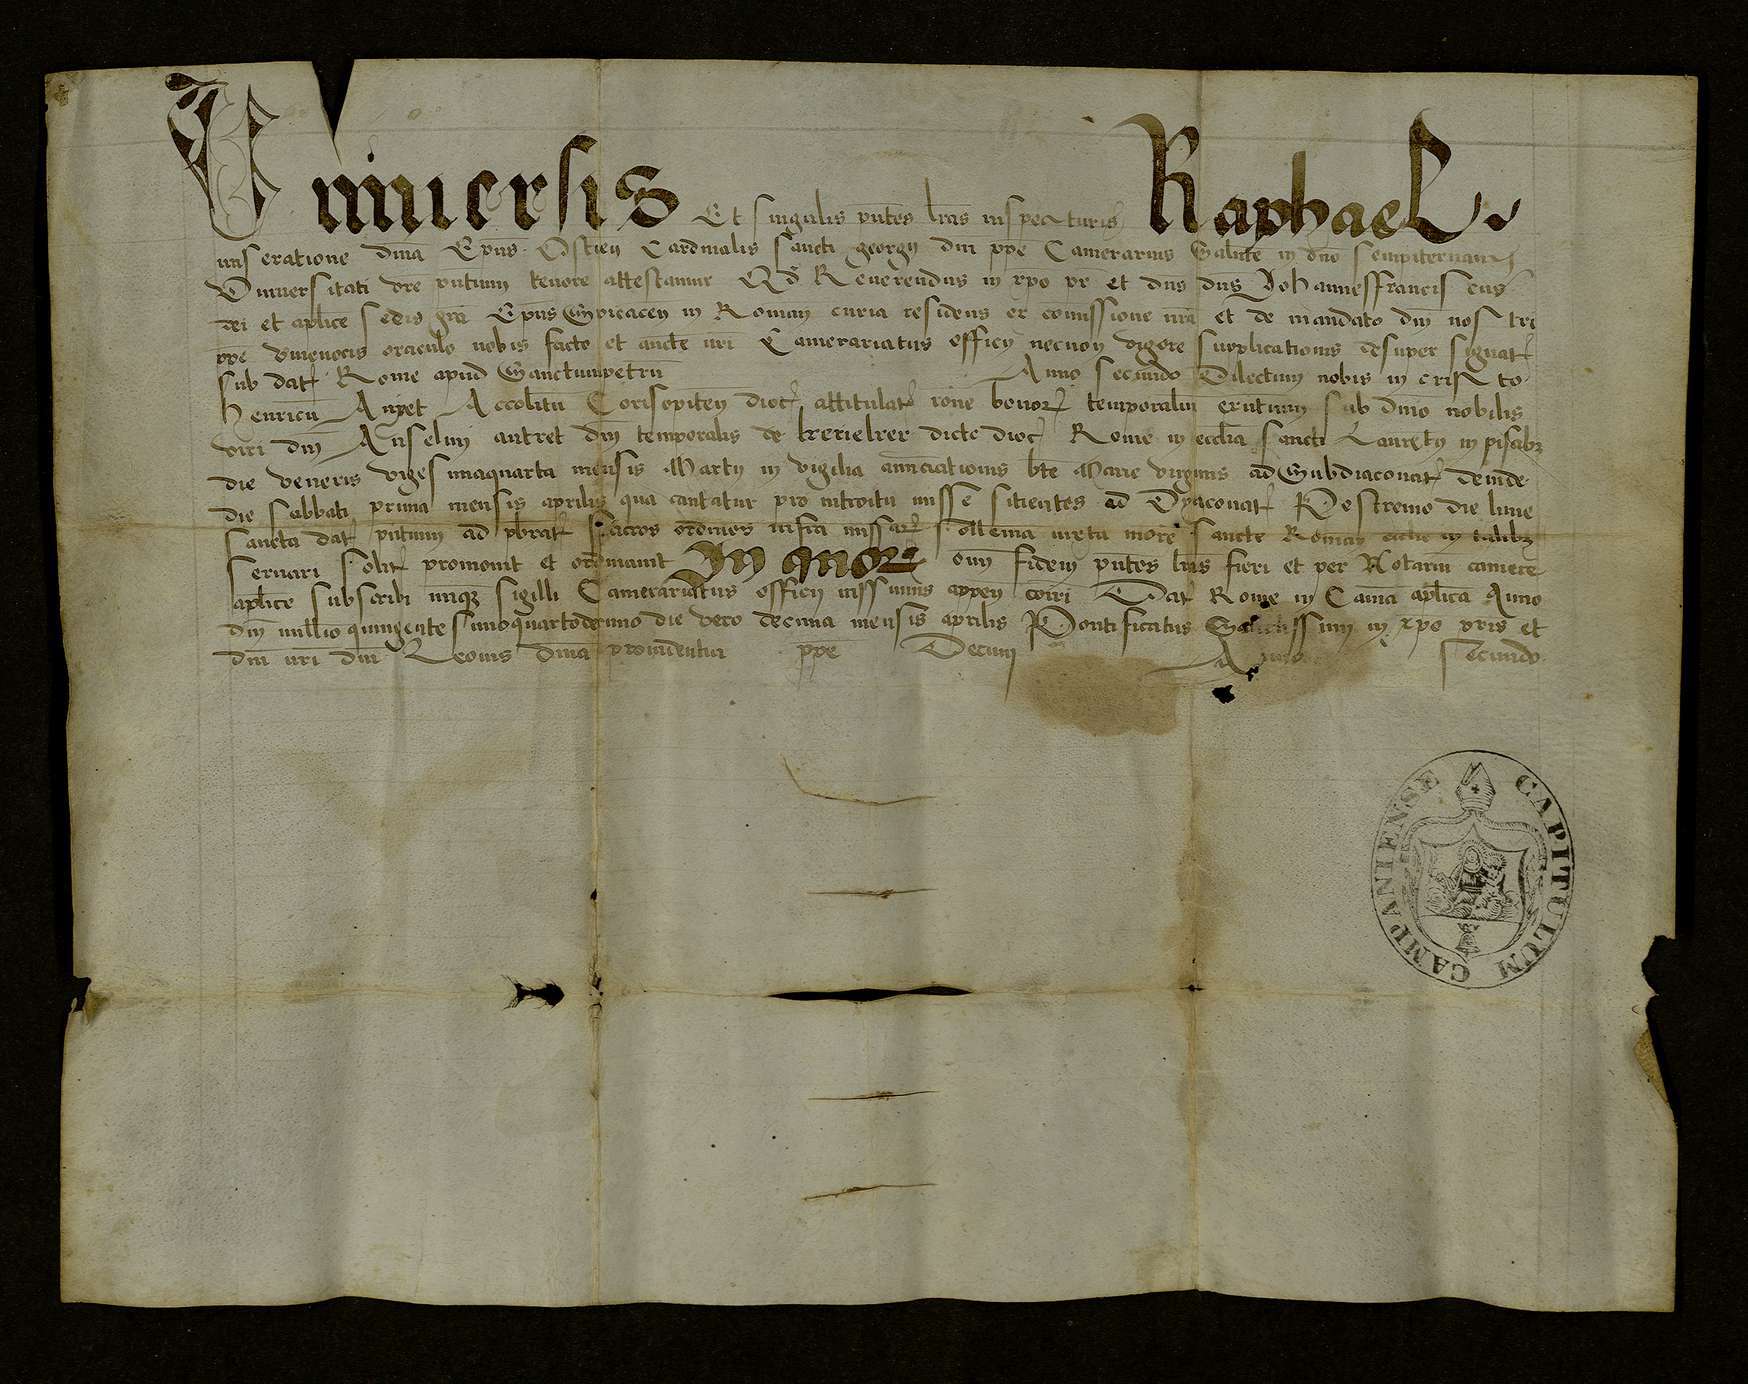 Universis Et singulis pntes lras inspecturis Raphael
miseratione dina Epus Ostien Cardinalis sancti georgij dni ppe Camerarius Salute in dno sempiternam
Universitati vre pntium tenore attestamur Qd Reverendus in xpo pr et dns dns Johannesffranciscus
dei et aplice sedis gra Epus in Roman curia residens ex comissione nra et de mandato dni nostri
ppe vivevocis oraculo nobis facto et aucte nri Camerariatus officij necnon vigore supplicationis desuper signat
sub dat Rome apud Sanctumpetru Anno secundo Dilectum nobis in cristo
henricu Accolitu Corisopiten dioc attitulat rone bonor temporaliu sub dnio nobilis
viri dni Anselmi autret dni temporalis de dicte dioc Rome in ecclia sancti Laurety in piscibz
die veneris vigesimaquarta mensis Martij in vigilia annuciationis bte Marie virginis ad Subdiaconat deinde
die sabbati prima mensis aprilis qua cantatur pro introitu misse sitientes ad Dyaconat Postremo die lune
sancta dat pntium ad pbrat sacros ordines infra missar sollenia iuxta more sancte Roman eccle in talibz
servari solit promovit et ordinavit In quor oim fidem pntes lras fieri et per Notariu camere
aplice subscribi nriqz sigilli Camerariatus officij iussimus appen coiri Dat Rome in Cama aplica Anno
dni millio quingentesimoquartodecimo die vero decima mensis aprilis Pontificatus Sanctissimi in xpo pris et
dni nri dni Leonis dina providentia ppe Decimi Anno secundo
CAPITULUM CAMPANIENSE